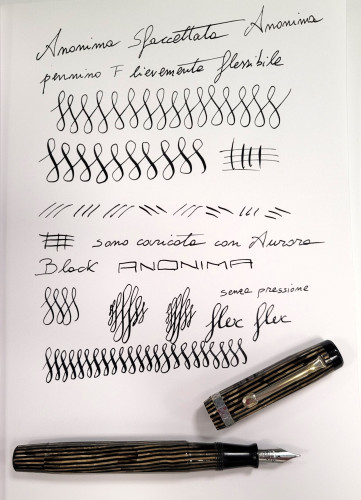 Anonima Sfaccettata Anonima
pennino F lievemente flessibile
sono caricata con Aurora
Black ANONIMA
senza pressione
flex flex